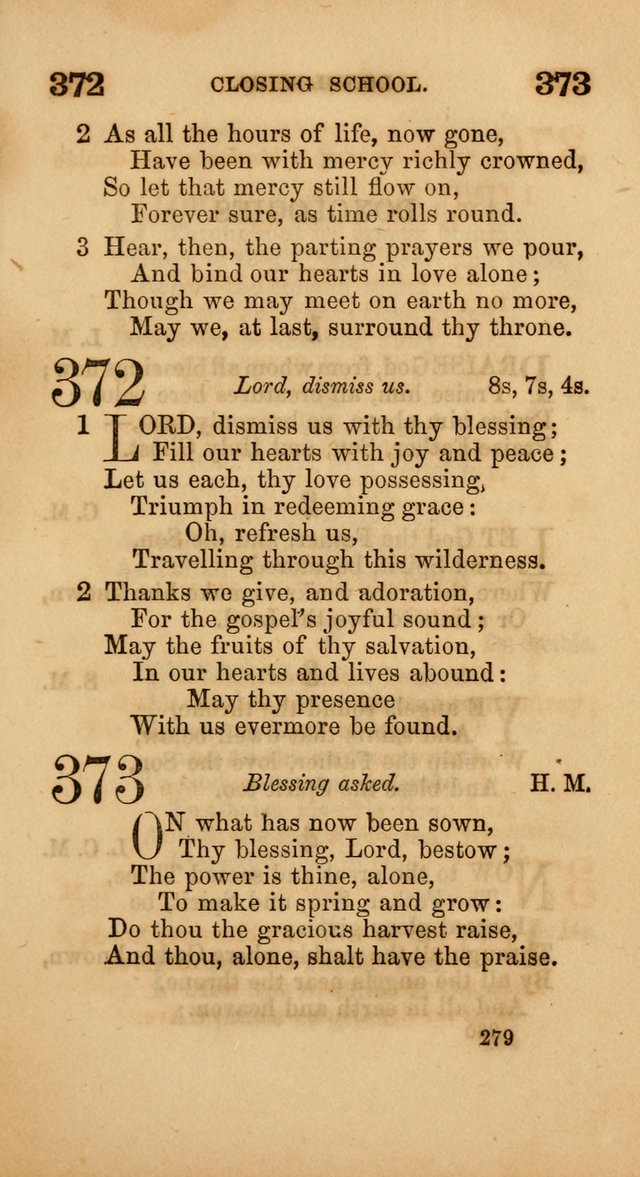 372 CLOSING SCHOOL. 373
2 As all the hours of life, now gone,
Have been with mercy richly crowned,
So let that mercy still flow on,
Forever sure, as time rolls round.
3 Hear, then, the parting prayers we pour,
And bind our hearts in love alone;
Though we may meet on earth no more,
May we, at last, surround thy throne.
372 Lord, dismiss us. 8s, 7s, 4s.
1 LORD, dismiss us with thy blessing;
Fill our hearts with joy and peace;
Let us each, thy love possessing,
Triumph in redeeming grace:
Oh, refresh us,
Travelling through this wilderness.
2 Thanks we give, and adoration,
For the gospel's joyful sound;
May the fruits of thy salvation,
In our hearts and lives abound:
May thy presence
With us evermore be found.
373 Blessing asked. H. M.
ON what has now been sown,
Thy blessing, Lord, bestow;
The power is thine, alone,
To make it spring and grow:
Do thou the gracious harvest raise,
And thou, alone, shalt have the praise.
279